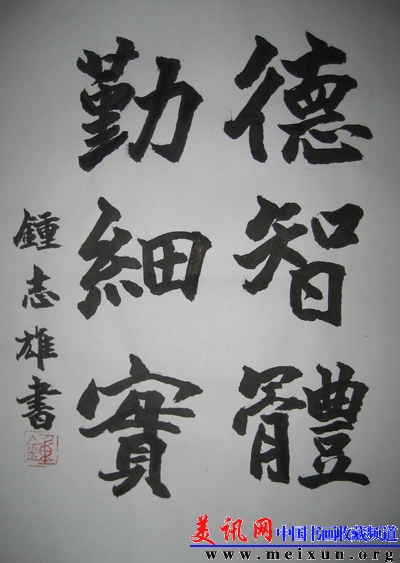 德智體
勤細實
鍾志雄書
鍾
美讯网 中国书画收藏频道
www.meixun.org